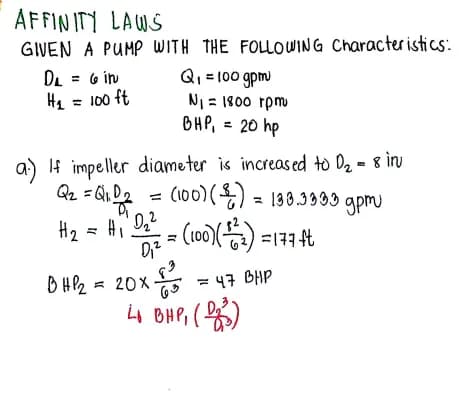 AFFINITY LAWS
GIVEN A PUMP WITH THE FOLLOWING Characteristics:
D₁ = 6 in Q₁ = 100 gpm
H₁ = 100 ft N₁ = 1800 rpm
BHP₁ = 20 hp
a.) If impeller diameter is increased to D₂ = 8 in
Q₂ = Q₁ D₂/D₁ = (100)(8/6) = 133.3333 gpm
H₂ = H₁ D₂²/D₁² = (100)(8²/6²) = 177 ft
BHP₂ = 20 x 8³/6³ = 47 BHP
↳ BHP₁ (D₂³/D₁³)